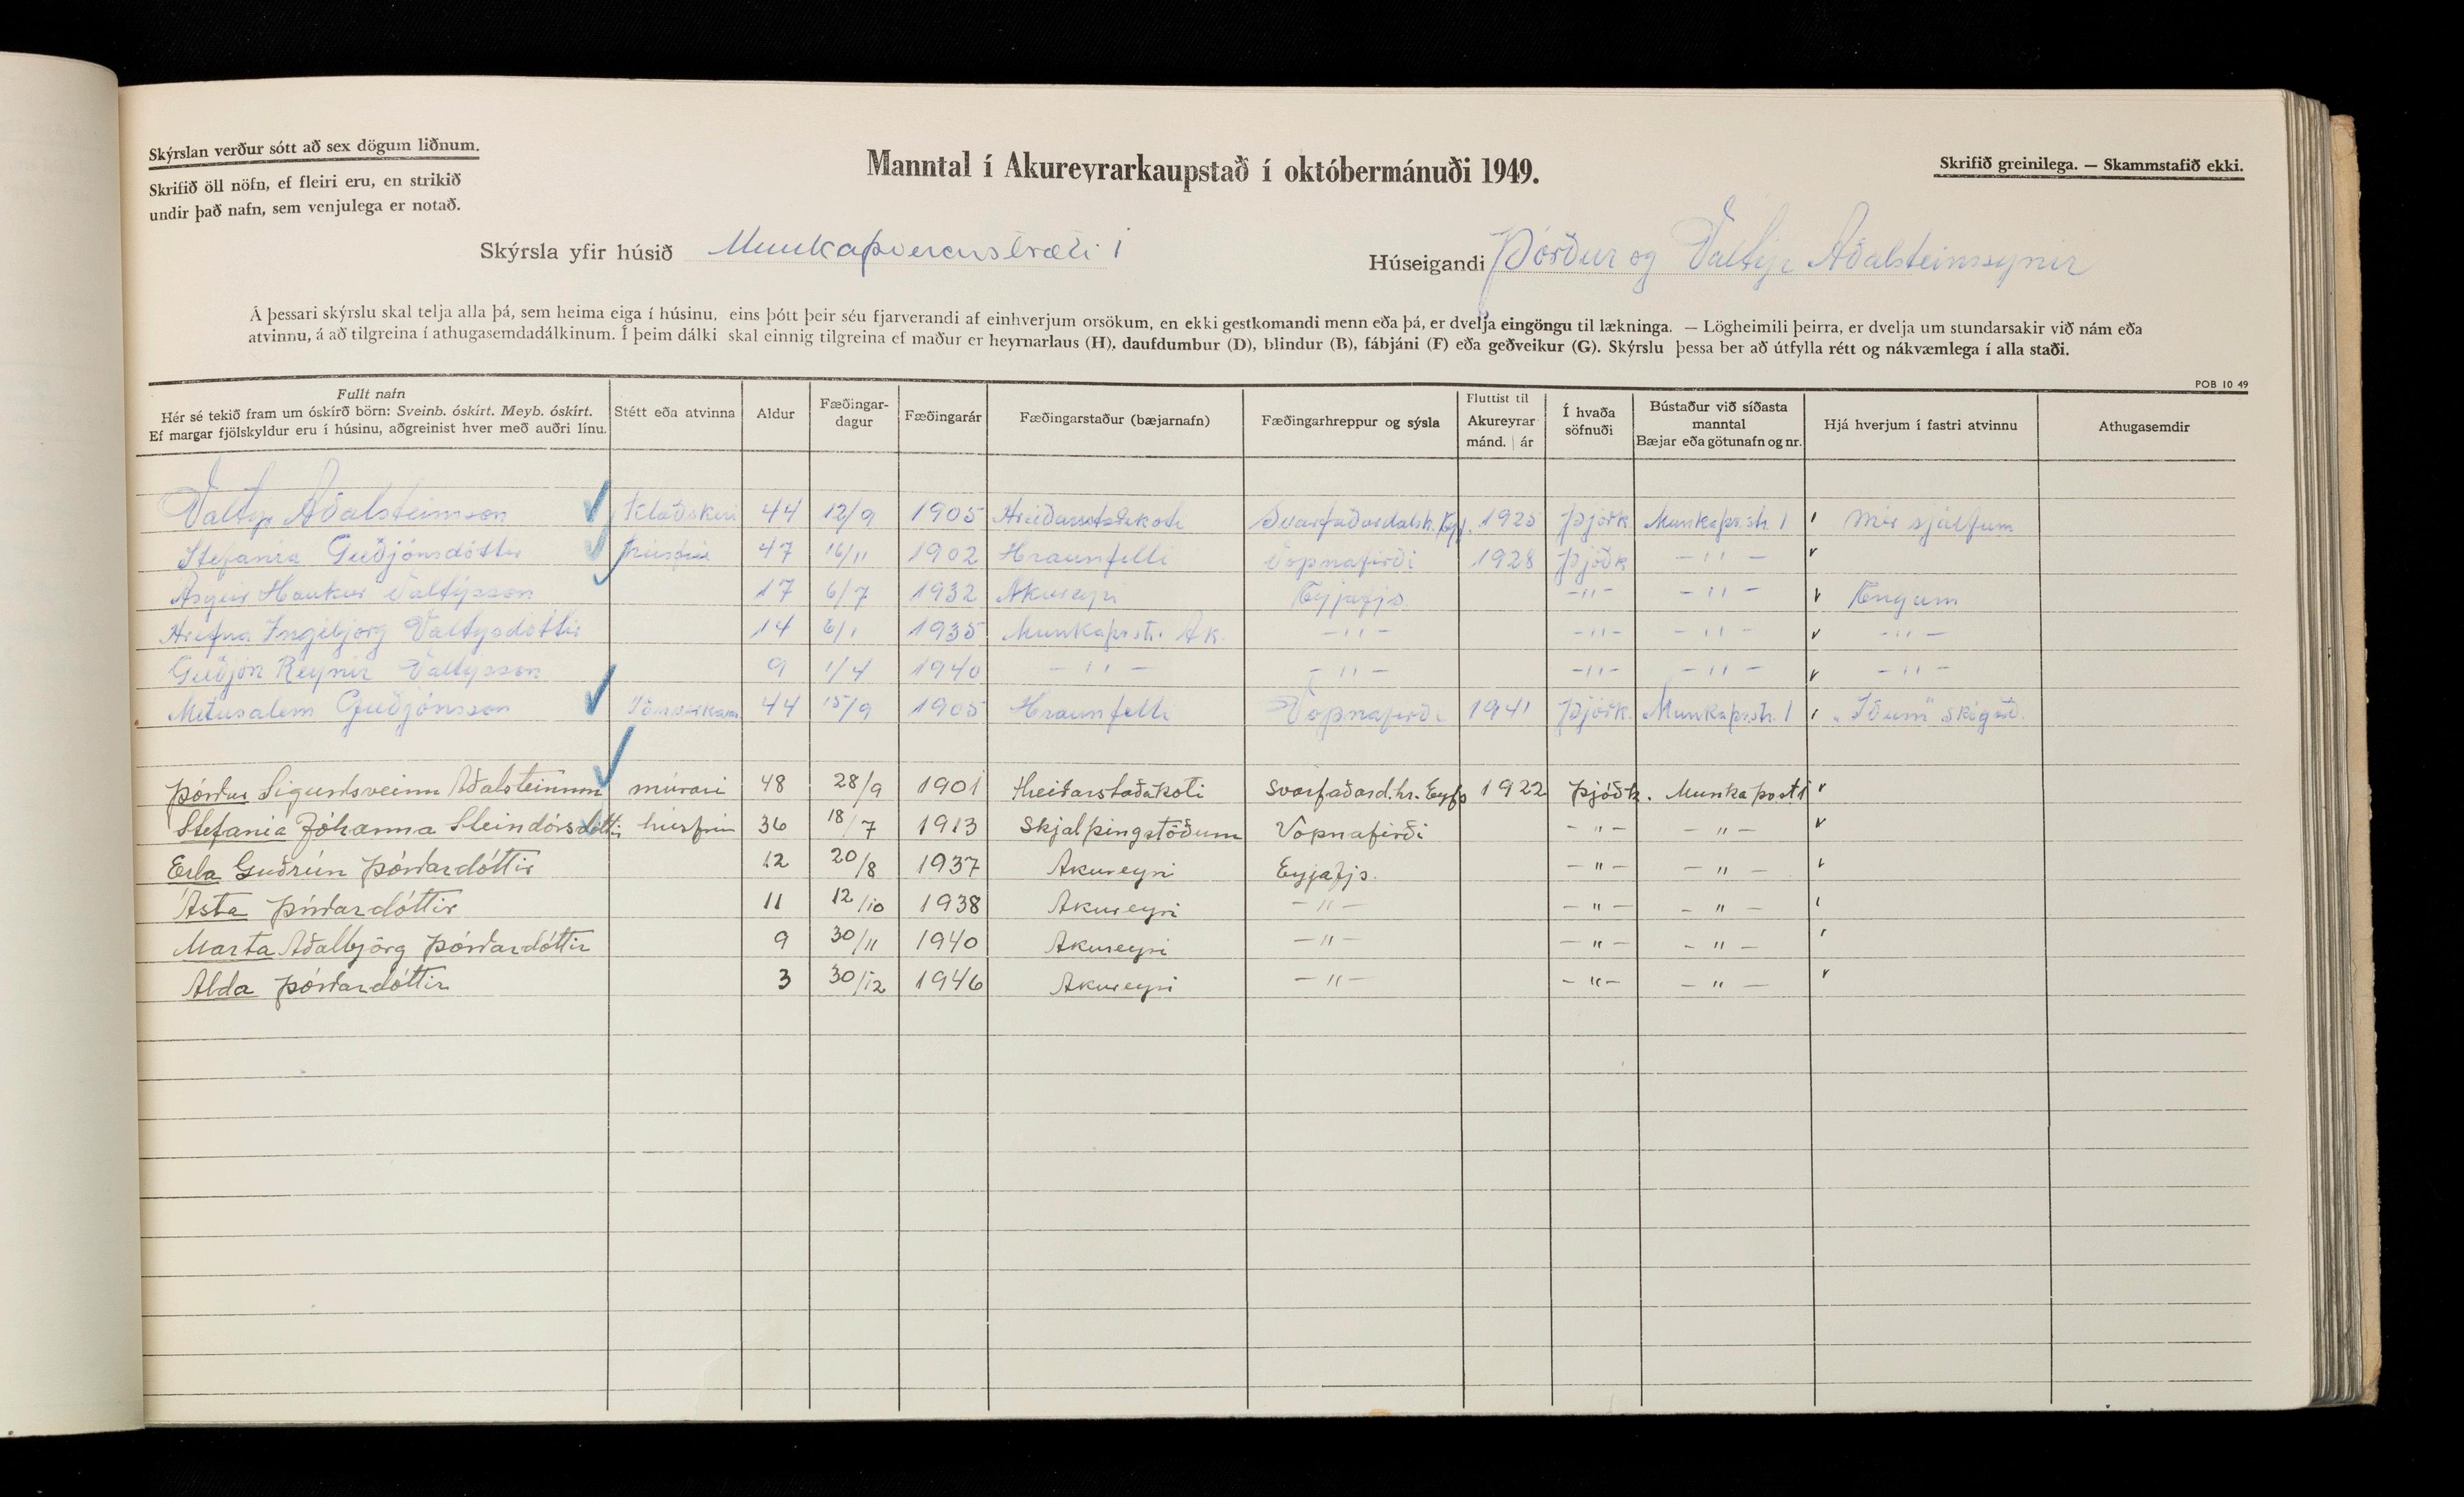 Skýrslan verður sótt að sex dögum liðnum.
Skrifið öll nöfn, ef fleiri eru, en strikið
undir það nafn, sem venjulega er notað.
Manntal í Akureyrarkaupstað í októbermánuði 1949.
Skrifið greinilega. — Skammstafið ekki.
Skýrsla yfir húsið Munkaþverárstræti 1
Húseigandi Þórður og Valtýr Aðalsteinssynir
Á þessari skýrslu skal telja alla þá, sem heima eiga í húsinu, eins þótt þeir séu fjarverandi af einhverjum orsökum, en ekki gestkomandi menn eða þá, er dvelja eingöngu til lækninga. — Lögheimili þeirra, er dvelja um stundarsakir við nám eða
atvinnu, á að tilgreina í athugasemdadálkinum. Í þeim dálki skal einnig tilgreina ef maður er heyrnarlaus (H), daufdumbur (D), blindur (B), fábjáni (F) eða geðveikur (G). Skýrslu þessa ber að útfylla rétt og nákvæmlega í alla staði.
POB 10 49
Fullt nafn
Hér sé tekið fram um óskírð börn: Sveinb. óskírt. Meyb. óskírt.
Ef margar fjölskyldur eru í húsinu, aðgreinist hver með auðri línu.
Stétt eða atvinna
Aldur
Fæðingar-
dagur
Fæðingarár
Fæðingarstaður (bæjarnafn)
Fæðingarhreppur og sýsla
Fluttist til
Akureyrar
mánd. | ár
Í hvaða
söfnuði
Bústaður við síðasta
manntal
Bæjar eða götunafn og nr.
Hjá hverjum í fastri atvinnu
Athugasemdir
Valtýr Aðalsteinsson Klæðskeri 44 12/9 1905 Hreiðarsstaðakoti Svarfaðardalsh. Eyj. 1925 Þjóðk. Munkaþv.str. 1 Mér sjálfum
Stefanía Guðjónsdóttir húsfrú 47 16/11 1902 Hraunfelli Vopnafirði 1928 Þjóðk — " —
Ásgeir Haukur Valtýsson 17 6/7 1932 Akureyri Eyjafjs. — " — — " — Engum
Hrefna Ingibjörg Valtýsdóttir 14 6/1 1935 Munkaþv.str. Ak. — " — — " — — " — — " —
Guðjón Reynir Valtýsson 9 1/4 1940 — " — — " — — " — — " — — " —
Metusalem Guðjónsson 44 15/9 1905 Hraunfelli Vopnafirði 1941 Þjóðk. Munkaþv.str. 1 „Iðunn" skógerð.
Þórður Sigursveinn Aðalsteinsson múrari 48 28/9 1901 Hreiðarstaðakoti Svarfaðard.hr. Eyf. 1922 Þjóðk. Munkaþvstr 1
Stefanía Jóhanna Steindórsdóttir húsfrú 36 18/7 1913 Skjalþingstöðum Vopnafirði — " — — " —
Erla Guðrún Þórðardóttir 12 20/8 1937 Akureyri Eyjafjs. — " — — " —
Ásta Þórðardóttir 11 12/10 1938 Akureyri — " — — " — — " —
Marta Aðalbjörg Þórðardóttir 9 30/11 1940 Akureyri — " — — " — — " —
Alda Þórðardóttir 3 30/12 1946 Akureyri — " — — " — — " —